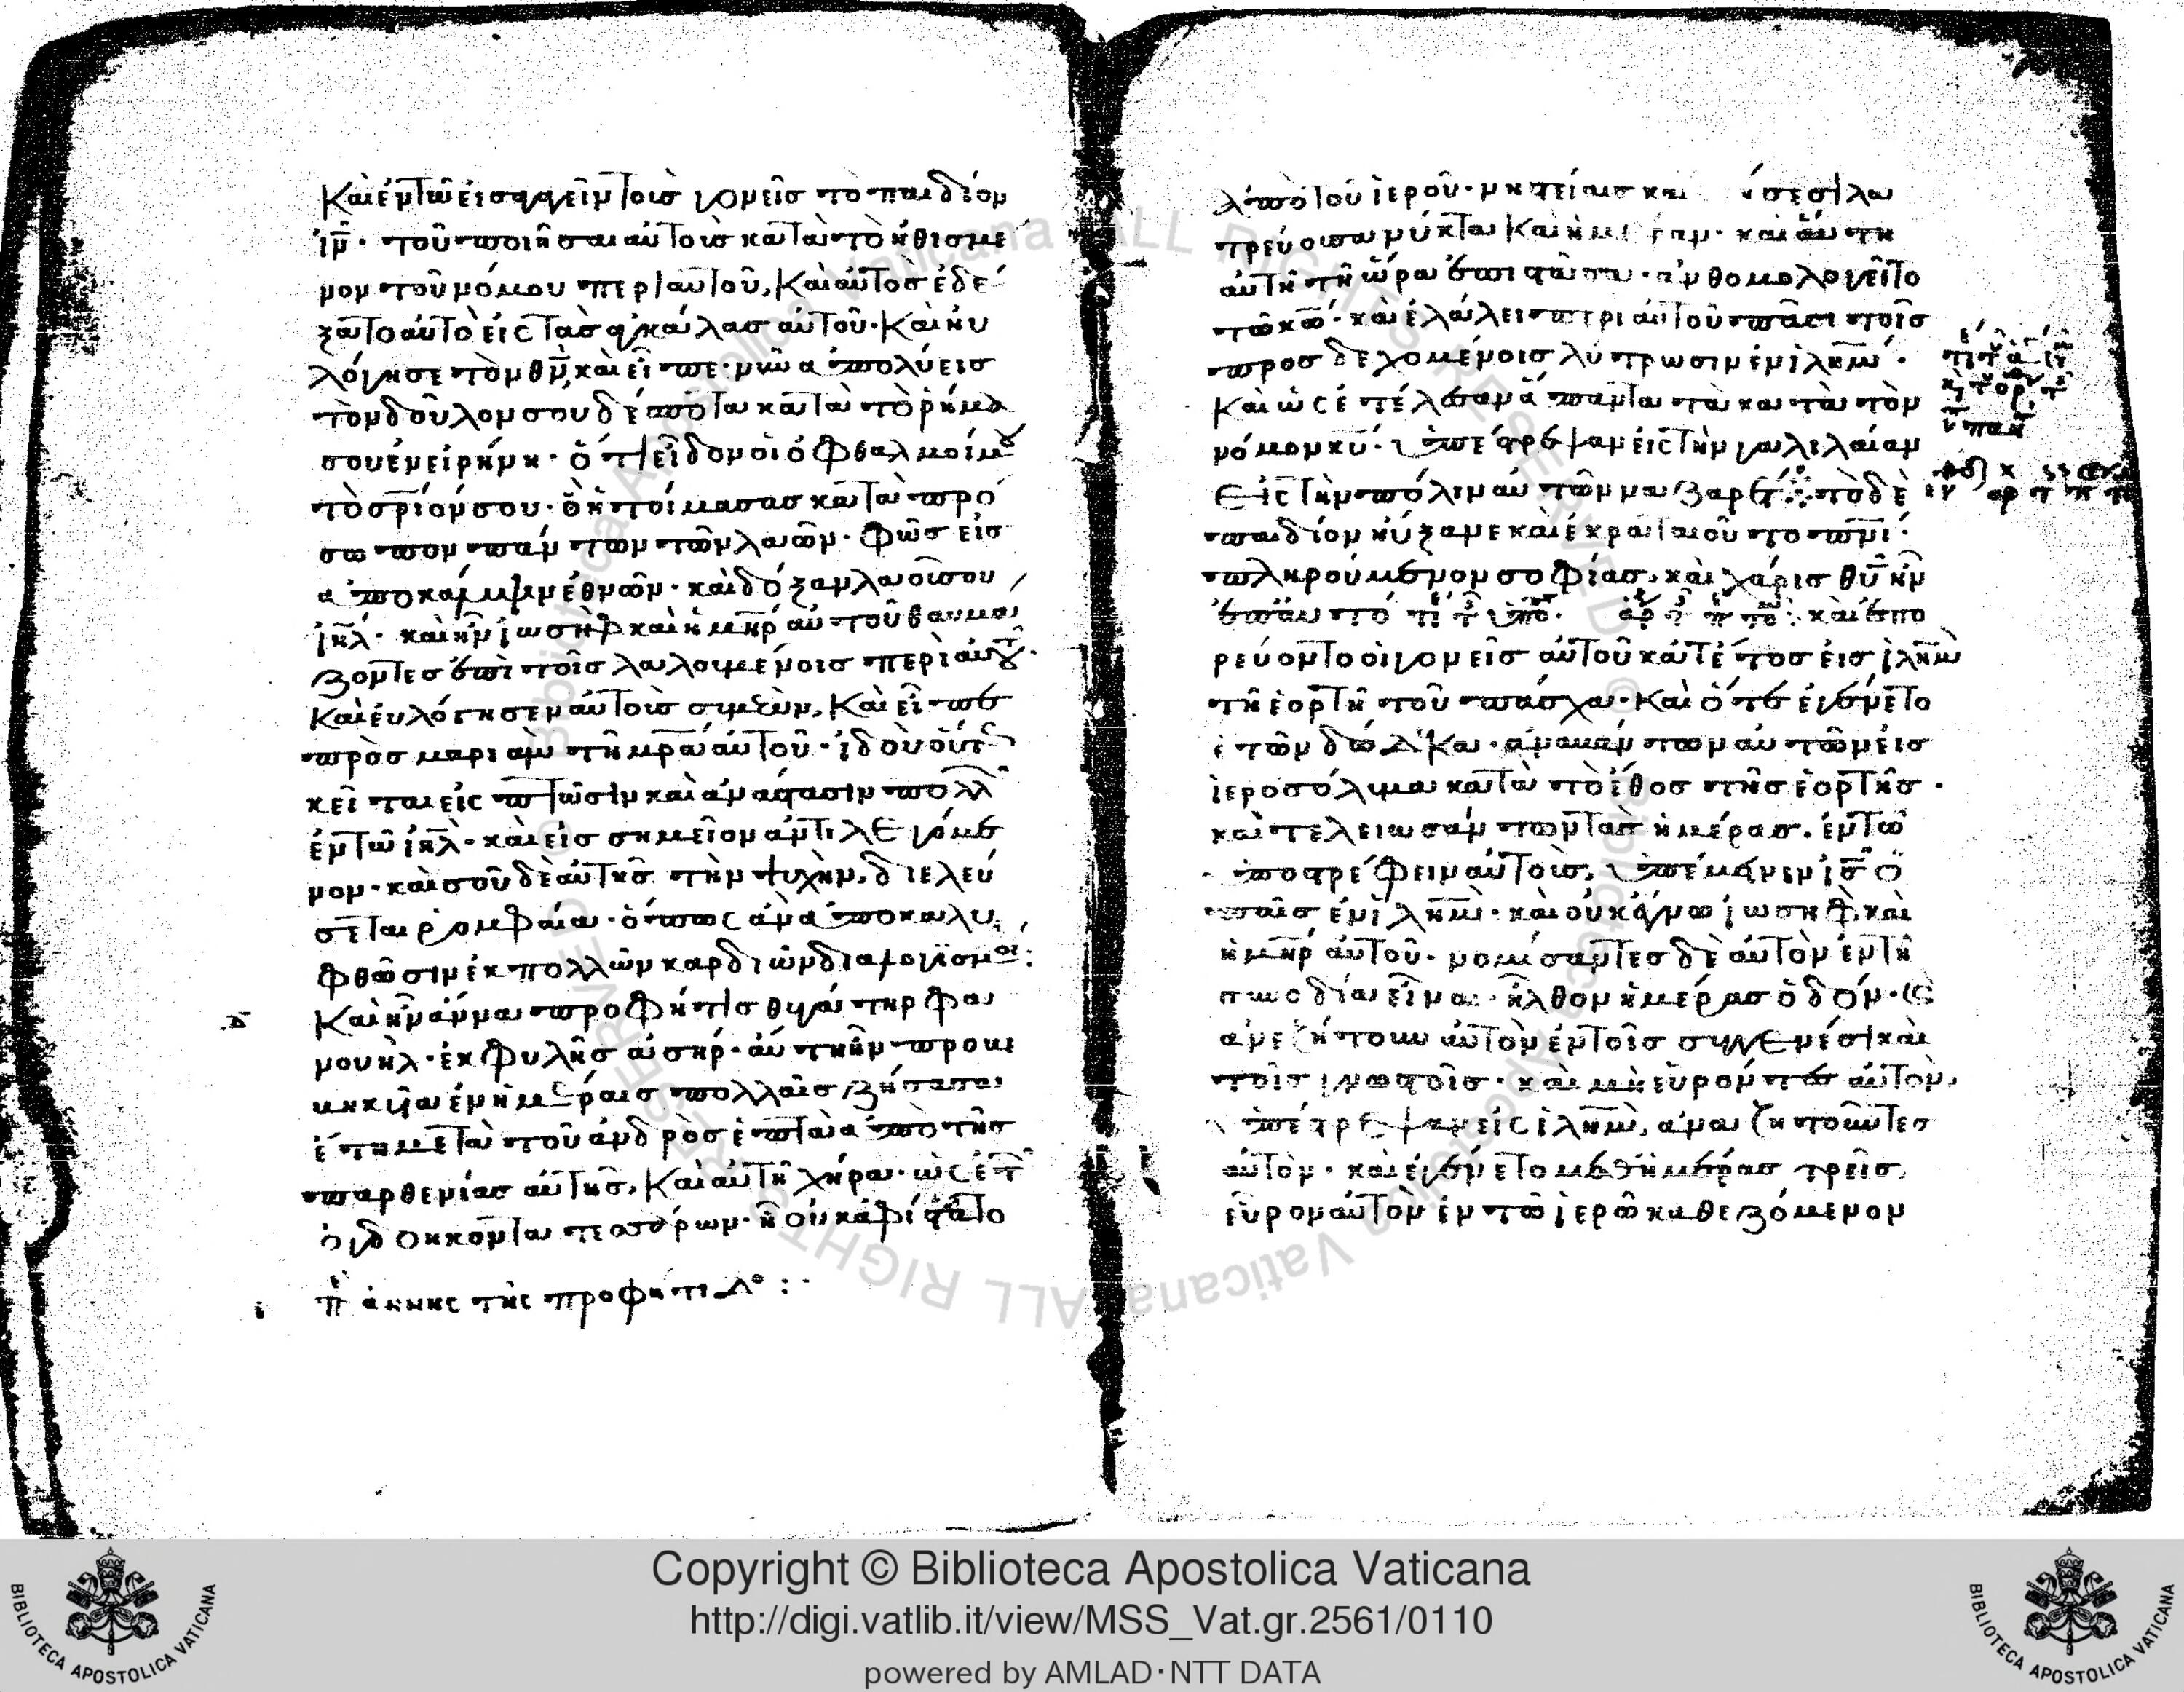 Καὶ ἐν τῶ εἰσαγαγεῖν τοὺς γονεῖς τὸ παιδίον
ιν̄· τοῦ ποιῆσαι αὐτοὺς κατὰ τὸ ἠθισμέ
νον τοῦ νόμου περὶ αὐτοῦ, Καὶ αὐτὸς ἐδέ
ξατο αὐτὸ εἰς τὰς ἀγκάλας αὐτοῦ· Καὶ ηὐ
λόγησε τὸν θν̄, καὶ εἶπε· νῦν ἀπολύεις
τὸν δοῦλον σου δέσποτα κατὰ τὸ ῥῆμα
σου ἐν εἰρήνη· ὅτι εἶδον οἱ ὀφθαλμοί μου
τὸ σρ̄ιόν σου· ὃ ἡτοίμασας κατὰ πρό
σωπον πάντων τῶν λαῶν· Φῶς εἰς
ἀποκάλυψιν ἐθνῶν· καὶ δόξαν λαοῦ σου
ιηλ̄· καὶ ἦν ἰωσὴφ καὶ ἡ μηρ̄ αὐτοῦ θαυμά
ζοντες ἐπὶ τοῖς λαλουμένοις περὶ αὐτοῦ·
Καὶ εὐλόγησεν αὐτοὺς συμεών, Καὶ εἶπε
πρὸς μαριὰμ τὴν μρ̄α αὐτοῦ· ἰδοὺ οὗτος
κεῖται εἰς πτῶσιν καὶ ἀνάστασιν πολλῶν
ἐν τῶ ιηλ̄· καὶ εἰς σημεῖον ἀντιλεγόμε
νον· καὶ σοῦ δὲ αὐτῆς τὴν ψυχὴν, διελεύ
σεται ρομφαία· ὅπως ἂν ἀποκαλυ
φθῶσιν ἐκ πολλῶν καρδιῶν διαλογισμοί:
Καὶ ἦν ἄννα προφῆτις θυγάτηρ φα
νουηλ· ἐκ φυλῆς ἀσήρ· αὐτη ἦν προβε
βηκυῖα ἐν ἡμέραις πολλαῖς ζήσασα
ἔτη μετὰ τοῦ ἀνδρὸς ἑπτὰ ἀπὸ τῆς
παρθενίας αὐτῆς, Καὶ αὐτὴ χήρα· ὡς ἐτῶν
ὀγδοήκοντα τεσσάρων· ἣ οὐκ ἀφίστατο
ἄννης τῆς προφητιδο:·
ἀπὸ τοῦ ἱεροῦ· νηστείαις καὶ δεήσεσι λα
τρεύουσα νύκτα Καὶ ἡμέραν· καὶ αὕτη
αὐτῆ τῆ ὥρα ἐπιστᾶσα· ἀνθομολογεῖτο
τῶ κω̄· καὶ ἐλάλει περὶ αὐτοῦ πᾶσι τοῖς
προσδεχομένοις λύτρωσιν ἐν ἱλη̄μ·
Καὶ ὡς ἐτέλεσαν ἅπαντα τὰ κατὰ τὸν
νόμον κῡ· ὑπέστρεψαν εἰς τὴν γαλιλαίαν
εἰς τὴν πόλιν αὐτῶν ναζαρέτ· τὸ δὲ
παιδίον ηὔξανε καὶ ἐκραταιοῦτο πν̄ι·
πληρούμενον σοφίας, καὶ χάρις θῡ ἦν
ἐπ' αὐτό καὶ ἐπο
ρεύοντο οἱ γονεῖς αὐτοῦ κατ' ἔτος εἰς ἱλη̄μ
τῆ ἑορτῆ τοῦ πάσχα· Καὶ ὅτε ἐγένετο
ἐτῶν δώδεκα· ἀναβάντων αὐτῶν εἰς
ἱεροσόλυμα κατὰ τὸ ἔθος τῆς ἑορτῆς·
καὶ τελειωσάντων τὰς ἡμέρας· ἐν τῶ
ὑποστρέφειν αὐτοὺς, ὑπέμεινεν ις̄ ὁ
παῖς ἐν ἱλη̄μ· καὶ οὐκ ἔγνω ἰωσὴφ καὶ
ἡ μηρ̄ αὐτοῦ· νομίσαντες δὲ αὐτὸν ἐν τῆ
συνοδία εἶναι· ἦλθον ἡμέρας ὁδόν· καὶ
ἀνεζήτουν αὐτὸν ἐν τοῖς συγγενέσι καὶ
τοῖς γνωστοῖς· καὶ μὴ εὑρόντες αὐτὸν,
ὑπέστρεψαν εἰς ἱλη̄μ, ἀναζητοῦντες
αὐτὸν· καὶ ἐγένετο μεθ' ἡμέρας τρεῖς,
εὗρον αὐτὸν ἐν τῶ ἱερῶ καθεζόμενον
Copyright © Biblioteca Apostolica Vaticana
http://digi.vatlib.it/view/MSS_Vat.gr.2561/0110
powered by AMLAD·NTT DATA
BIBLIOTECA APOSTOLICA VATICANA
BIBLIOTECA APOSTOLICA VATICANA